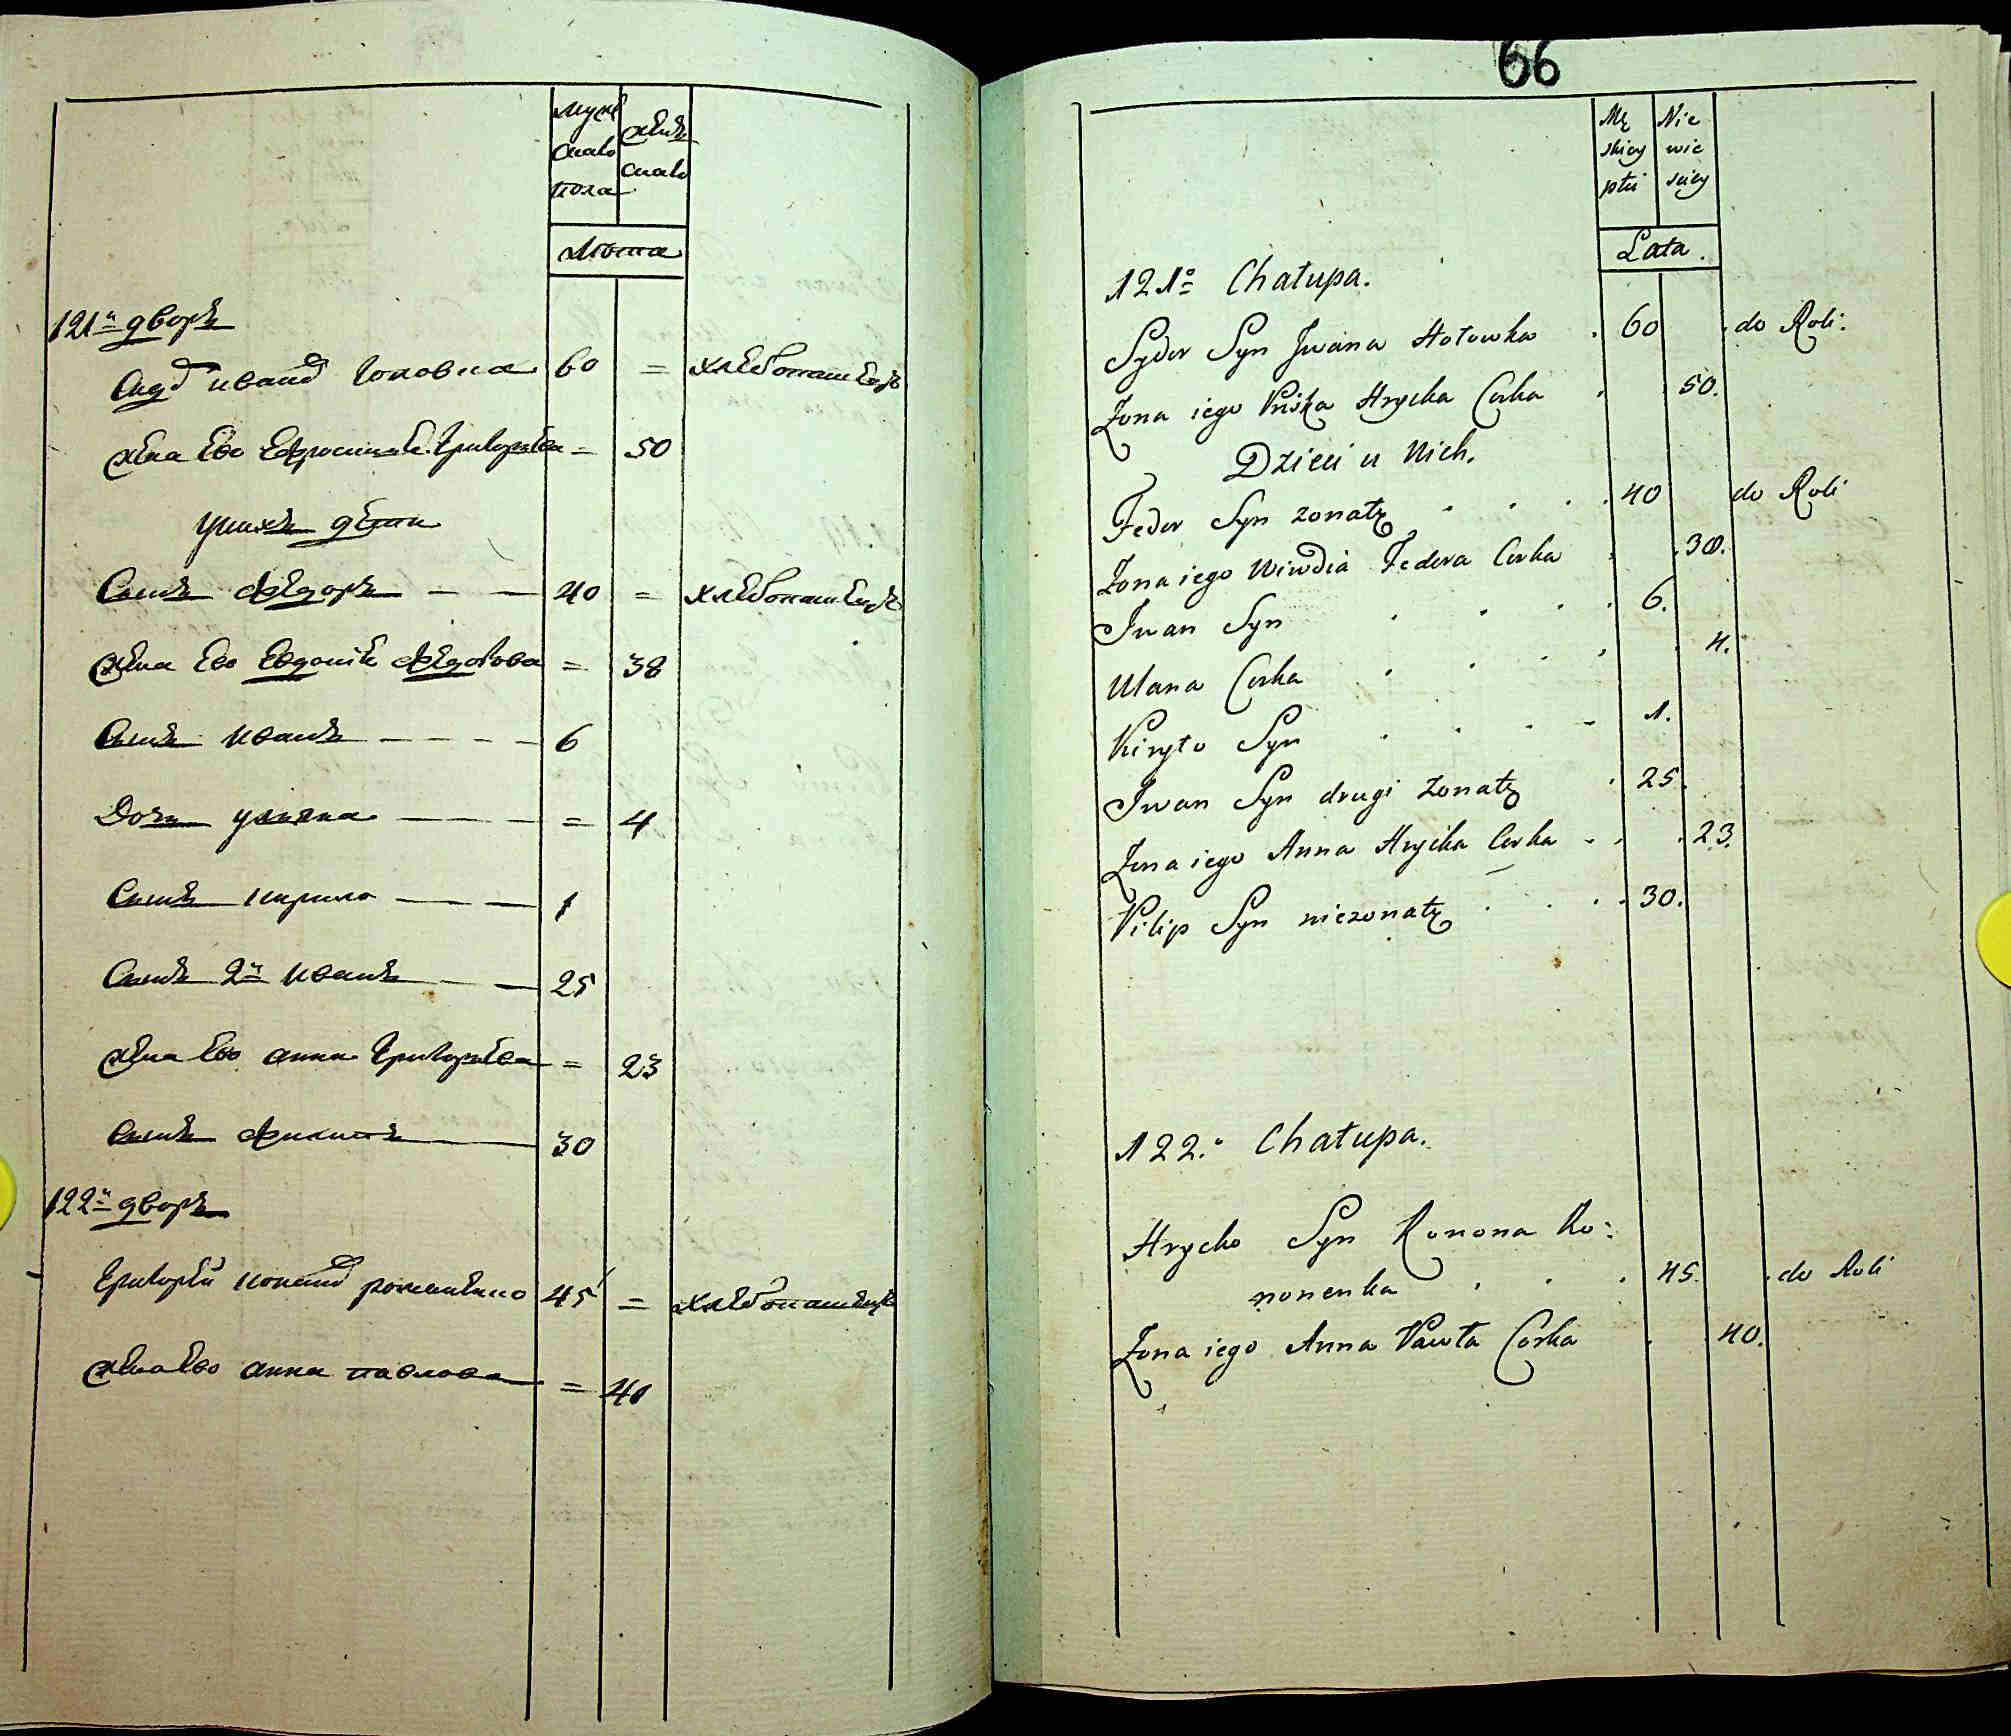 мужескаго пола
женскаго
лѣта
121й дворъ
Сидоръ Ивановъ Головка 60 = хлебопашецъ
жена ево Ефросинія Григорьева = 50
у нихъ дети
Сынъ Федоръ — — 40 = хлебопашецъ
жена ево Евдокія Федорова = 38
Сынъ Иванъ — — — — 6
Дочь Ульяна — — — — = 4
Сынъ Кирило — — — 1
Сынъ 2й Иванъ — — 25
жена ево анна Григорьева = 23
Сынъ Филипъ — 30
122й дворъ
Григорій кононовъ 45 = хлебопашецъ
жена ево анна павлова = 40
66
Mę Nie
skiey wie
płci sciey
Lata.
121o Chałupa.
Sydor Syn Jwana Hołowka . 60 . do Roli.
Zona iego Priska Hrycka Corka . . 50.
Dzieci u Nich.
Fedor Syn zonaty . . . . 40 do Roli
Zona iego Wiwdia Fedora Corka . . 38.
Jwan Syn . . . . 6.
Ulana Corka . . . . . 4.
Kiryło Syn . . . - 1.
Jwan Syn drugi zonaty . 25.
Zona iego Anna Hrycka Corka - . . 23.
Pilip Syn niezonaty . . . . 30.
122.o Chałupa.
Hrycko Syn Konona Ko:
nonenka . . . 45. . do Roli
Zona iego Anna Pawła Corka . . 40.